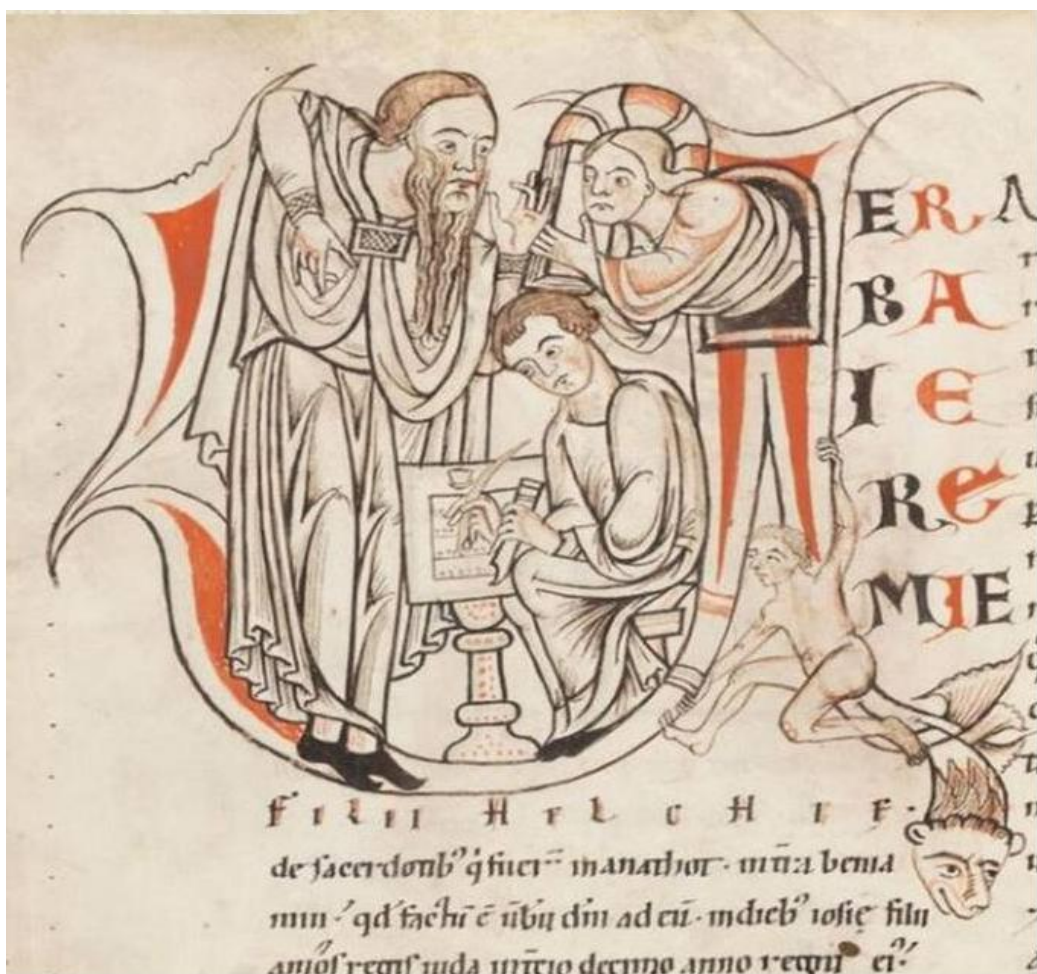 ER
BA
IE
RE
MIE
FILII HELCHIE.
de sacerdotibꝰ q̇ fuer̄ in anathot · in tr̄a benia
min · qd̓ factū ē űbū dn̄i ad eū · in diebꝰ iosię filii
amos regis iuda in t̄cio decimo anno regni eiꝰ